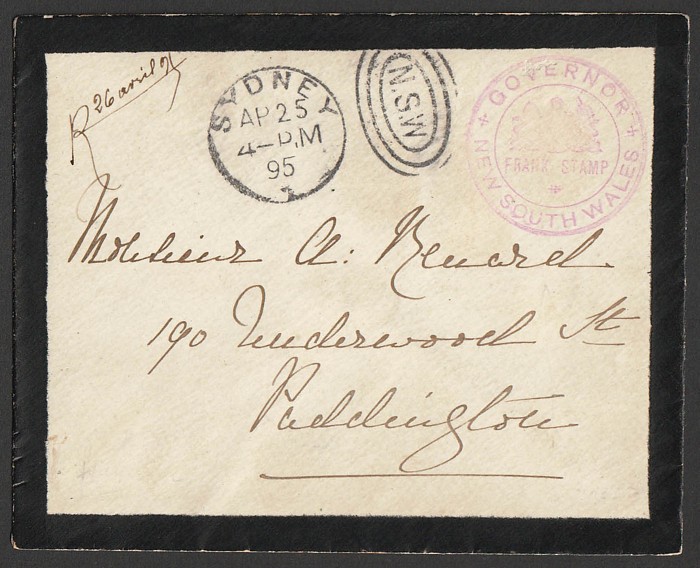 R 26 avril 95
SYDNEY
AP 25
4-P.M
95
7
N.S.W
GOVERNOR
FRANK STAMP
NEW SOUTH WALES
Monsieur A: Renard
190 Underwood St
Paddington